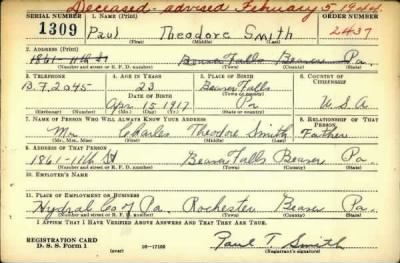 Deceased - advised February 5, 1944.
SERIAL NUMBER 1. NAME (Print) ORDER NUMBER
1309 Paul Theodore Smith 2437
(First) (Middle) (Last)
2. ADDRESS (Print)
1861-11th St Beaver Falls Beaver Pa.
(Number and street or R. F. D. number) (Town) (County) (State)
3. TELEPHONE 4. AGE IN YEARS 5. PLACE OF BIRTH 6. COUNTRY OF CITIZENSHIP
B.F. 2045 23 Beaver Falls
DATE OF BIRTH (Town or county)
Apr 15 1917 Pa U.S.A
(Exchange) (Number) (Mo.) (Day) (Yr.) (State or country)
7. NAME OF PERSON WHO WILL ALWAYS KNOW YOUR ADDRESS 8. RELATIONSHIP OF THAT PERSON
Mr. Charles Theodore Smith Father
(Mr., Mrs., Miss) (First) (Middle) (Last)
9. ADDRESS OF THAT PERSON
1861-11th St Beaver Falls Beaver Pa.
(Number and street or R. F. D. number) (Town) (County) (State)
10. EMPLOYER'S NAME
11. PLACE OF EMPLOYMENT OR BUSINESS
Hydral Co of Pa. Rochester Beaver Pa.
(Number and street or R. F. D. number) (Town) (County) (State)
I AFFIRM THAT I HAVE VERIFIED ABOVE ANSWERS AND THAT THEY ARE TRUE.
REGISTRATION CARD
D. S. S. Form 1 (over) 16-17105 Paul T. Smith
(Registrant's signature)